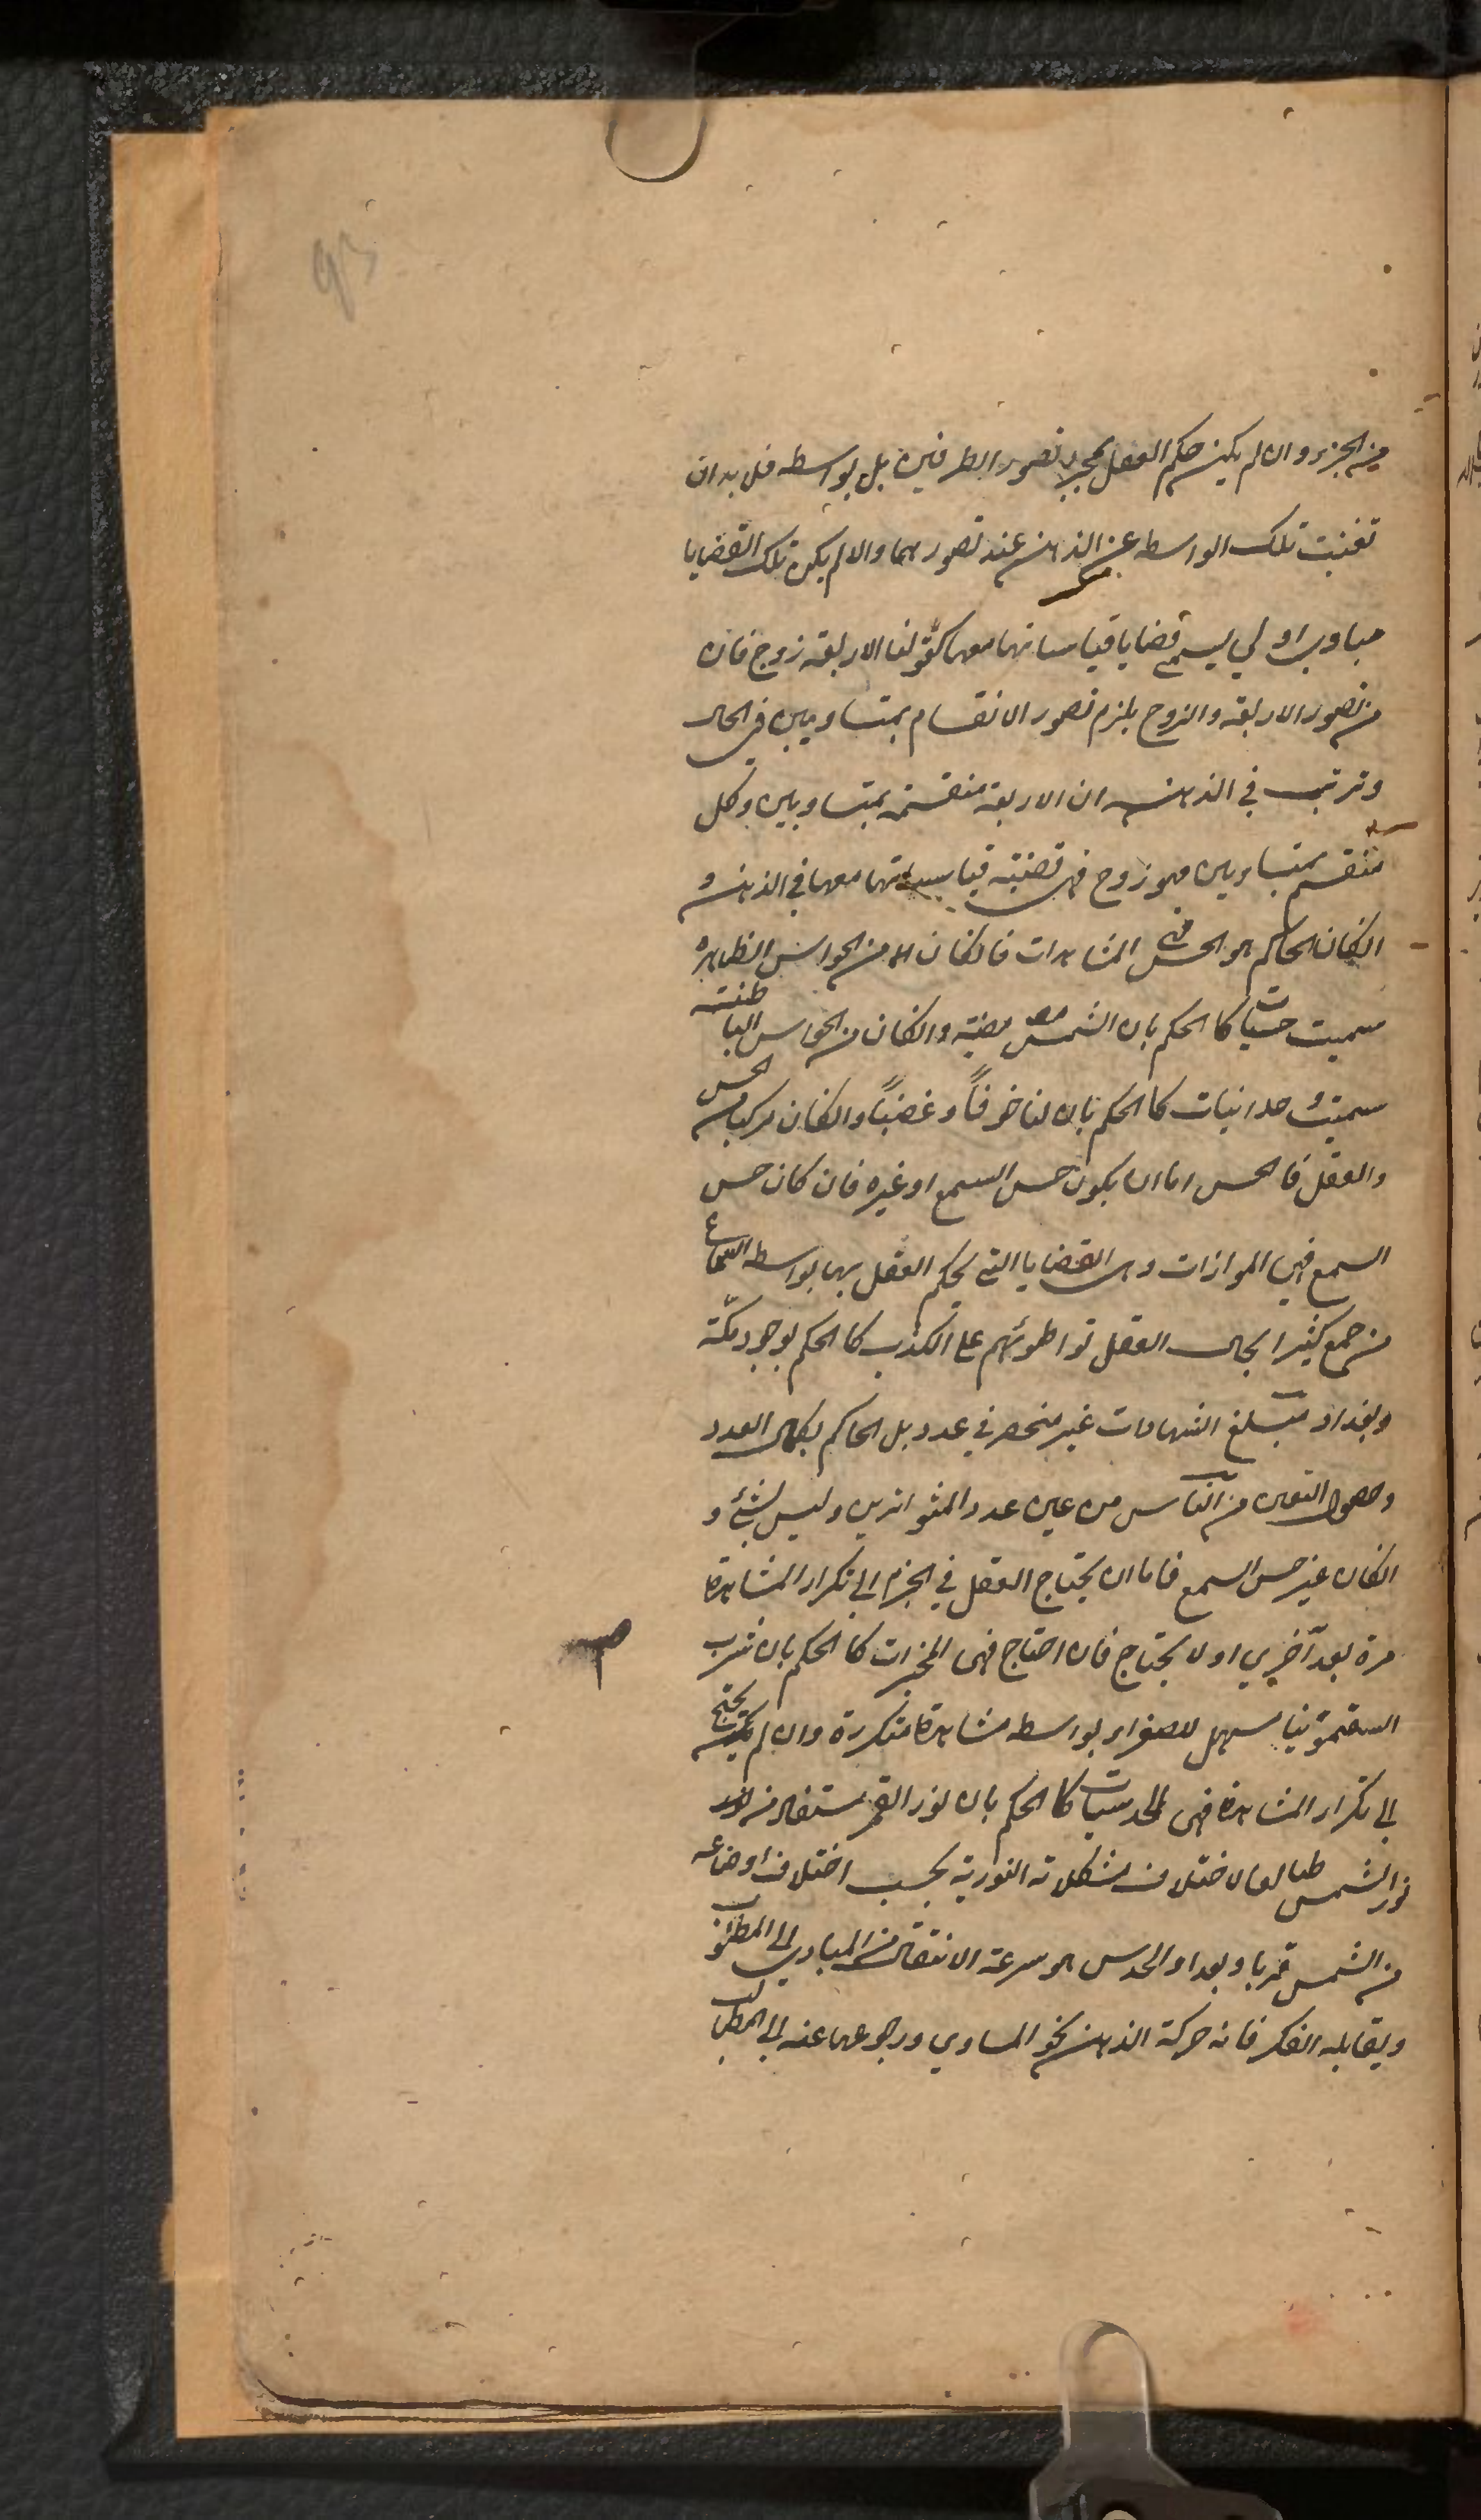 93
من الجزء وان لم يكن حكم العقل بمجرد تصور الطرفين بل بواسطه فلا بد ان
تغيب تلك الواسطه عن الذهن عند تصورهما والا لم يكن تلك القضايا
مبادي اولي يسمي قضايا قياساتها معها كقولنا الاربعة زوج فان
من تصور الاربعة والزوج يلزم تصور الانقسام بمتساويين في الحال
وترتب في الذهن ان الاربعة منقسمة بمتساويين وكل
منقسم بمتساويين فهو زوج فهى قضية قياساتها معها في الذهن و
انكان الحاكم هو الحس فهى المشاهدات فانكان من الحواس الظاهره
سميت حسيات كالحكم بان الشمس مضية وانكان من الحواس الباطنة
سميت وحدانيات كالحكم بان لنا خوفاً وغضباً وانكان مركبا من الحس
والعقل فالحس اما ان يكون حس السمع او غيره فان كان حس
السمع فهى المتواترات وهى القضايا التى يحكم العقل بها بواسطه السماع
من جمع كثير احال العقل تواطوئهم على الكذب كالحكم بوجود مكّة
وبغداد ومبلغ الشهادات غير منحصر في عدد بل الحاكم بكمال العدد
وحصول اليقين من الناس من عين عدد المتواترين وليس بشئ و
انكان غير حس السمع فاما ان يحتاج العقل في الجزم الى تكرار المشاهدة
مرة بعد أخري او لا يحتاج فان احتاج فهى المجربات كالحكم بان شرب
السقمونيا مسهل للصفراء بواسطه مشاهدة متكررة وان لم يحتج
الى تكرار المشاهدة فهى الحدسيات كالحكم بان نور القمر مستفاد من
نور الشمس لاختلاف تشكلاته النورية بحسب اختلاف اوضاعه
من الشمس قربا وبعدا والحدس هو سرعة الانتقال من المبادي الى المطلوب
ويقابله الفكر فانه حركة الذهن نحو المبادي ورجوعها عنه الى المطالب